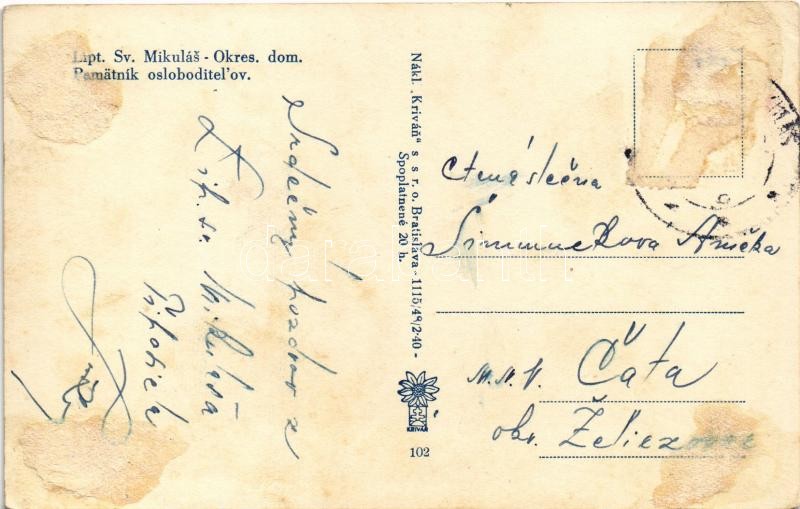 Lipt. Sv. Mikuláš - Okres. dom.
Pamätník osloboditeľov.
Srdečný pozdrav z
Lip. sv. Mikuláša
Nákl. „Kriváň" s s r. o. Bratislava - 1115/49/2-40 -
Spoplatnené 20 h.
KRIVÁŇ
102
Ctená slečna
Šimunekova Anička
M.N.V. Čata
okr. Želiezovce